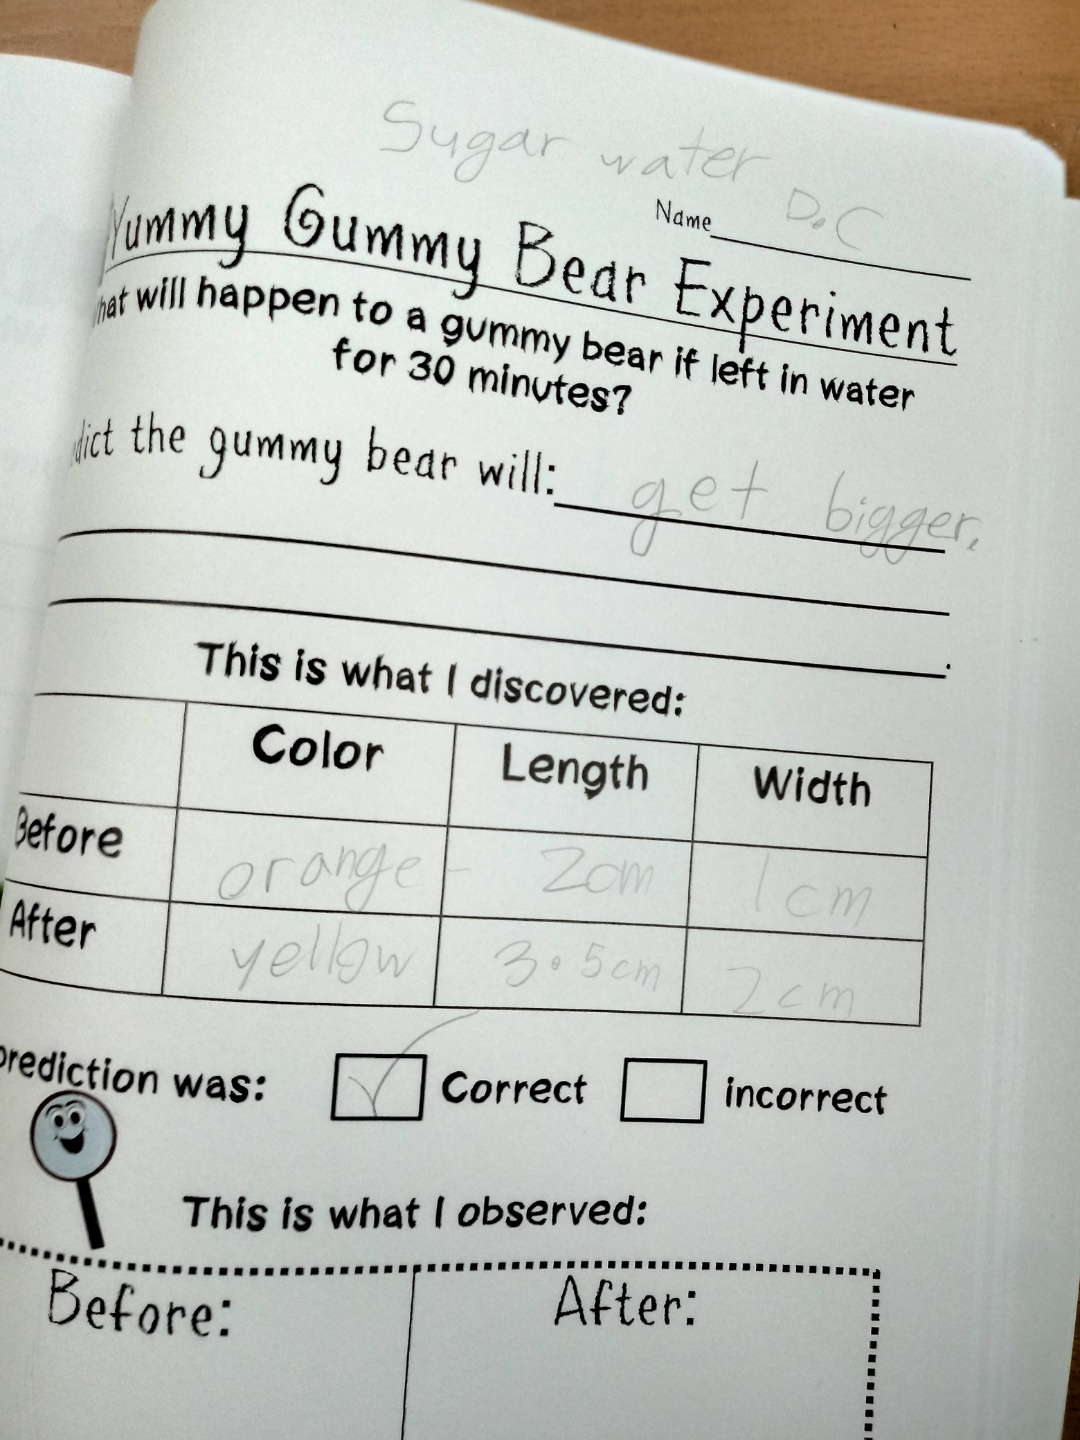 Sugar water
Name D.C
Yummy Gummy Bear Experiment
hat will happen to a gummy bear if left in water
for 30 minutes?
dict the gummy bear will: get bigger.
This is what I discovered:
Color Length Width
Before orange 2cm 1cm
After yellow 3.5cm 2cm
prediction was: Correct incorrect
This is what I observed:
Before: After: